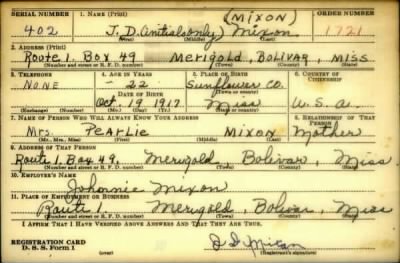 SERIAL NUMBER 1. NAME (Print) (MIXON) ORDER NUMBER
402 J. D. (initials only) Mixon 1721
(First) (Middle) (Last)
2. ADDRESS (Print)
Route 1. Box 49 Merigold, BOLIVAR, MISS
(Number and street or R. F. D. number) (Town) (County) (State)
3. TELEPHONE 4. AGE IN YEARS 5. PLACE OF BIRTH 6. COUNTRY OF CITIZENSHIP
NONE 22 Sunflower Co.
DATE OF BIRTH (Town or county)
Oct. 19 1917. Miss U. S. A.
(Exchange) (Number) (Mo.) (Day) (Yr.) (State or country)
7. NAME OF PERSON WHO WILL ALWAYS KNOW YOUR ADDRESS 8. RELATIONSHIP OF THAT PERSON
Mrs. Pearlie MIXON Mother
(Mr., Mrs., Miss) (First) (Middle) (Last)
9. ADDRESS OF THAT PERSON
Route 1. Box 49, Merigold, Bolivar, Miss
(Number and street or R. F. D. number) (Town) (County) (State)
10. EMPLOYER'S NAME
Johnnie Mixon
11. PLACE OF EMPLOYMENT OR BUSINESS
Route 1. Merigold, Bolivar, Miss
(Number and street or R. F. D. number) (Town) (County) (State)
I AFFIRM THAT I HAVE VERIFIED ABOVE ANSWERS AND THAT THEY ARE TRUE.
REGISTRATION CARD
D. S. S. Form 1 J. D. Mixon
(Registrant's signature)